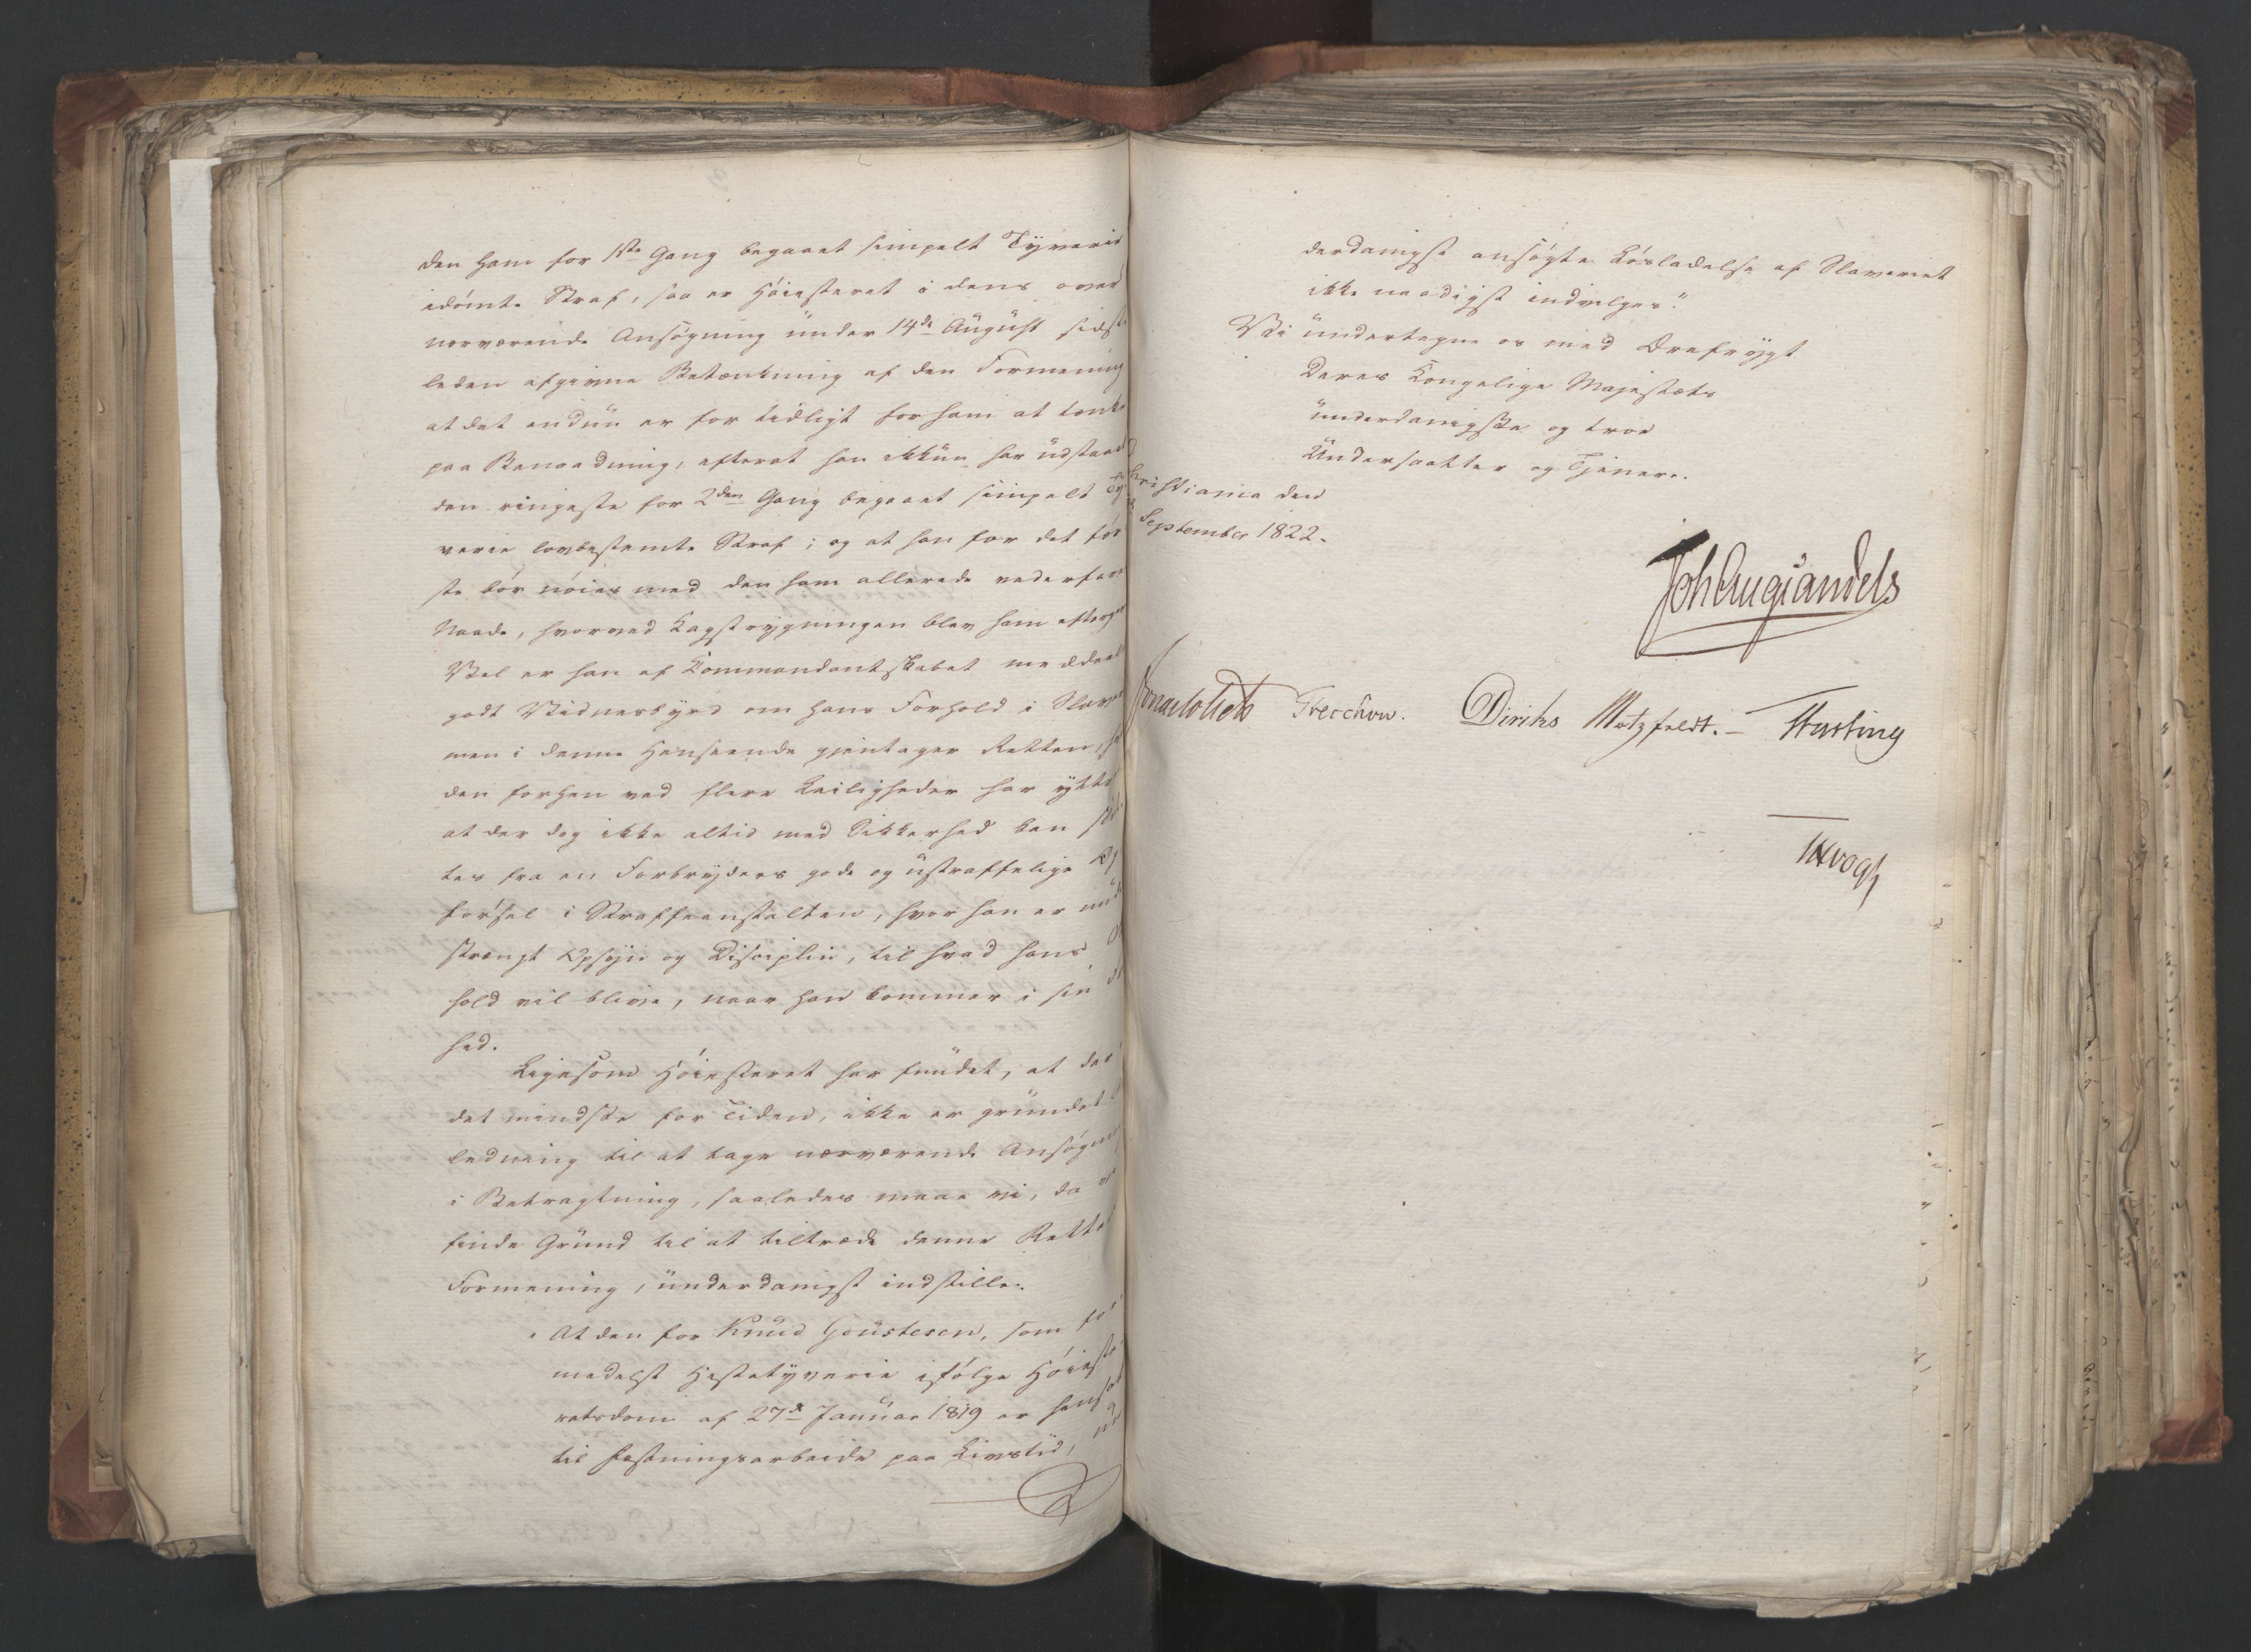 den ham for 1ste Gang begaaet simpelt Tyverie
idømte Straf, saa er Høiesteret i dens over
nærværende Ansøgning under 14de August sidst
leden afgivne Betænkning af den Formening
at det endnu er for tidligt for ham at tænke
paa Benaadning, efterat han ikkun har udstaaet
den ringeste for 2den Gang begaaet simpelt Ty-
verie lovbestemte Straf; og at han for det før
ste bør nøies med den ham allerede vederfarne
Naade, hvorved Kagstrygningen blev ham eftergi
Vel er han af Commandantskabet meddeelt
godt Vidnesbyrd om hans Forhold i Slave
men i denne Henseende gientager Retten,
den forhen ved flere Leiligheder har yttret
at der dog ikke altid med Sikkerhed kan slut
tes fra en Forbryders gode og ustraffelige Op
førsel i Straffeanstalten, hvor han er under
strængt Opsyn og Disciplin, til hvad hans
hold vil blive, naar han kommer i sin
hed.
Ligesom Høiesteret har fundet, at der
det mindste for Tiden, ikke er grundet
ledning til at tage nærværende Ansøgning
i Betragtning, saaledes maae vi, da vi
finde Grund til at tiltræde denne Rettes
Formening, underdanigst indstille:
"At den for Knud Goustesen, som for
medelst Hestetyverie ifølge Høieste
retsdom af 27de Januar 1819 er hensat
til Fæstningsarbeide paa Livstid,
derdanigst ansøgte Løsladelse af Slaveriet
ikke naadigst indvilges."
Vi undertegne os med Ærefrygt
Deres Kongelige Majestæts
underdanigste og troe
Undersaatter og Tjenere.
Christiania den
September 1822.
Joh Aug Sandels
Jonas Collett Treschow. Diriks Motzfeldt. Fasting
Vogt